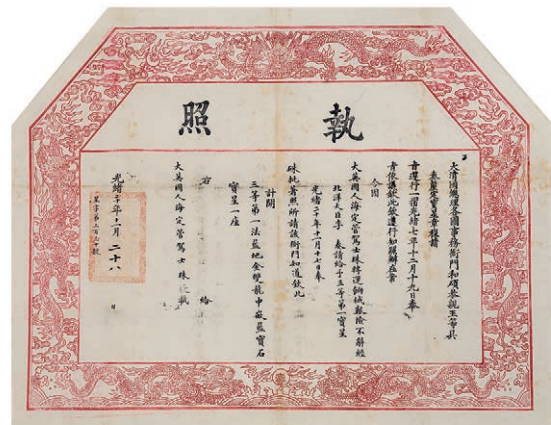 執照
大清國總理各國事務衙門和碩恭親王等具
奏釐定寶星章程請
旨遵行一摺光緒七年十二月十九日奉
旨依議欽此欽遵行知在案
今因
大英國人海定營駕士珠將運餉械艱險不辭經
北洋大臣李 奏請給予三等第一寶星
光緒二十年十一月十七日奉
硃批著照所請該衙門知道欽此
計開
三等第一法藍地金雙龍中嵌藍寶石
寶星一座
右 給
大英國人海定營駕士珠 收執
光緒二十年十一月二十八日